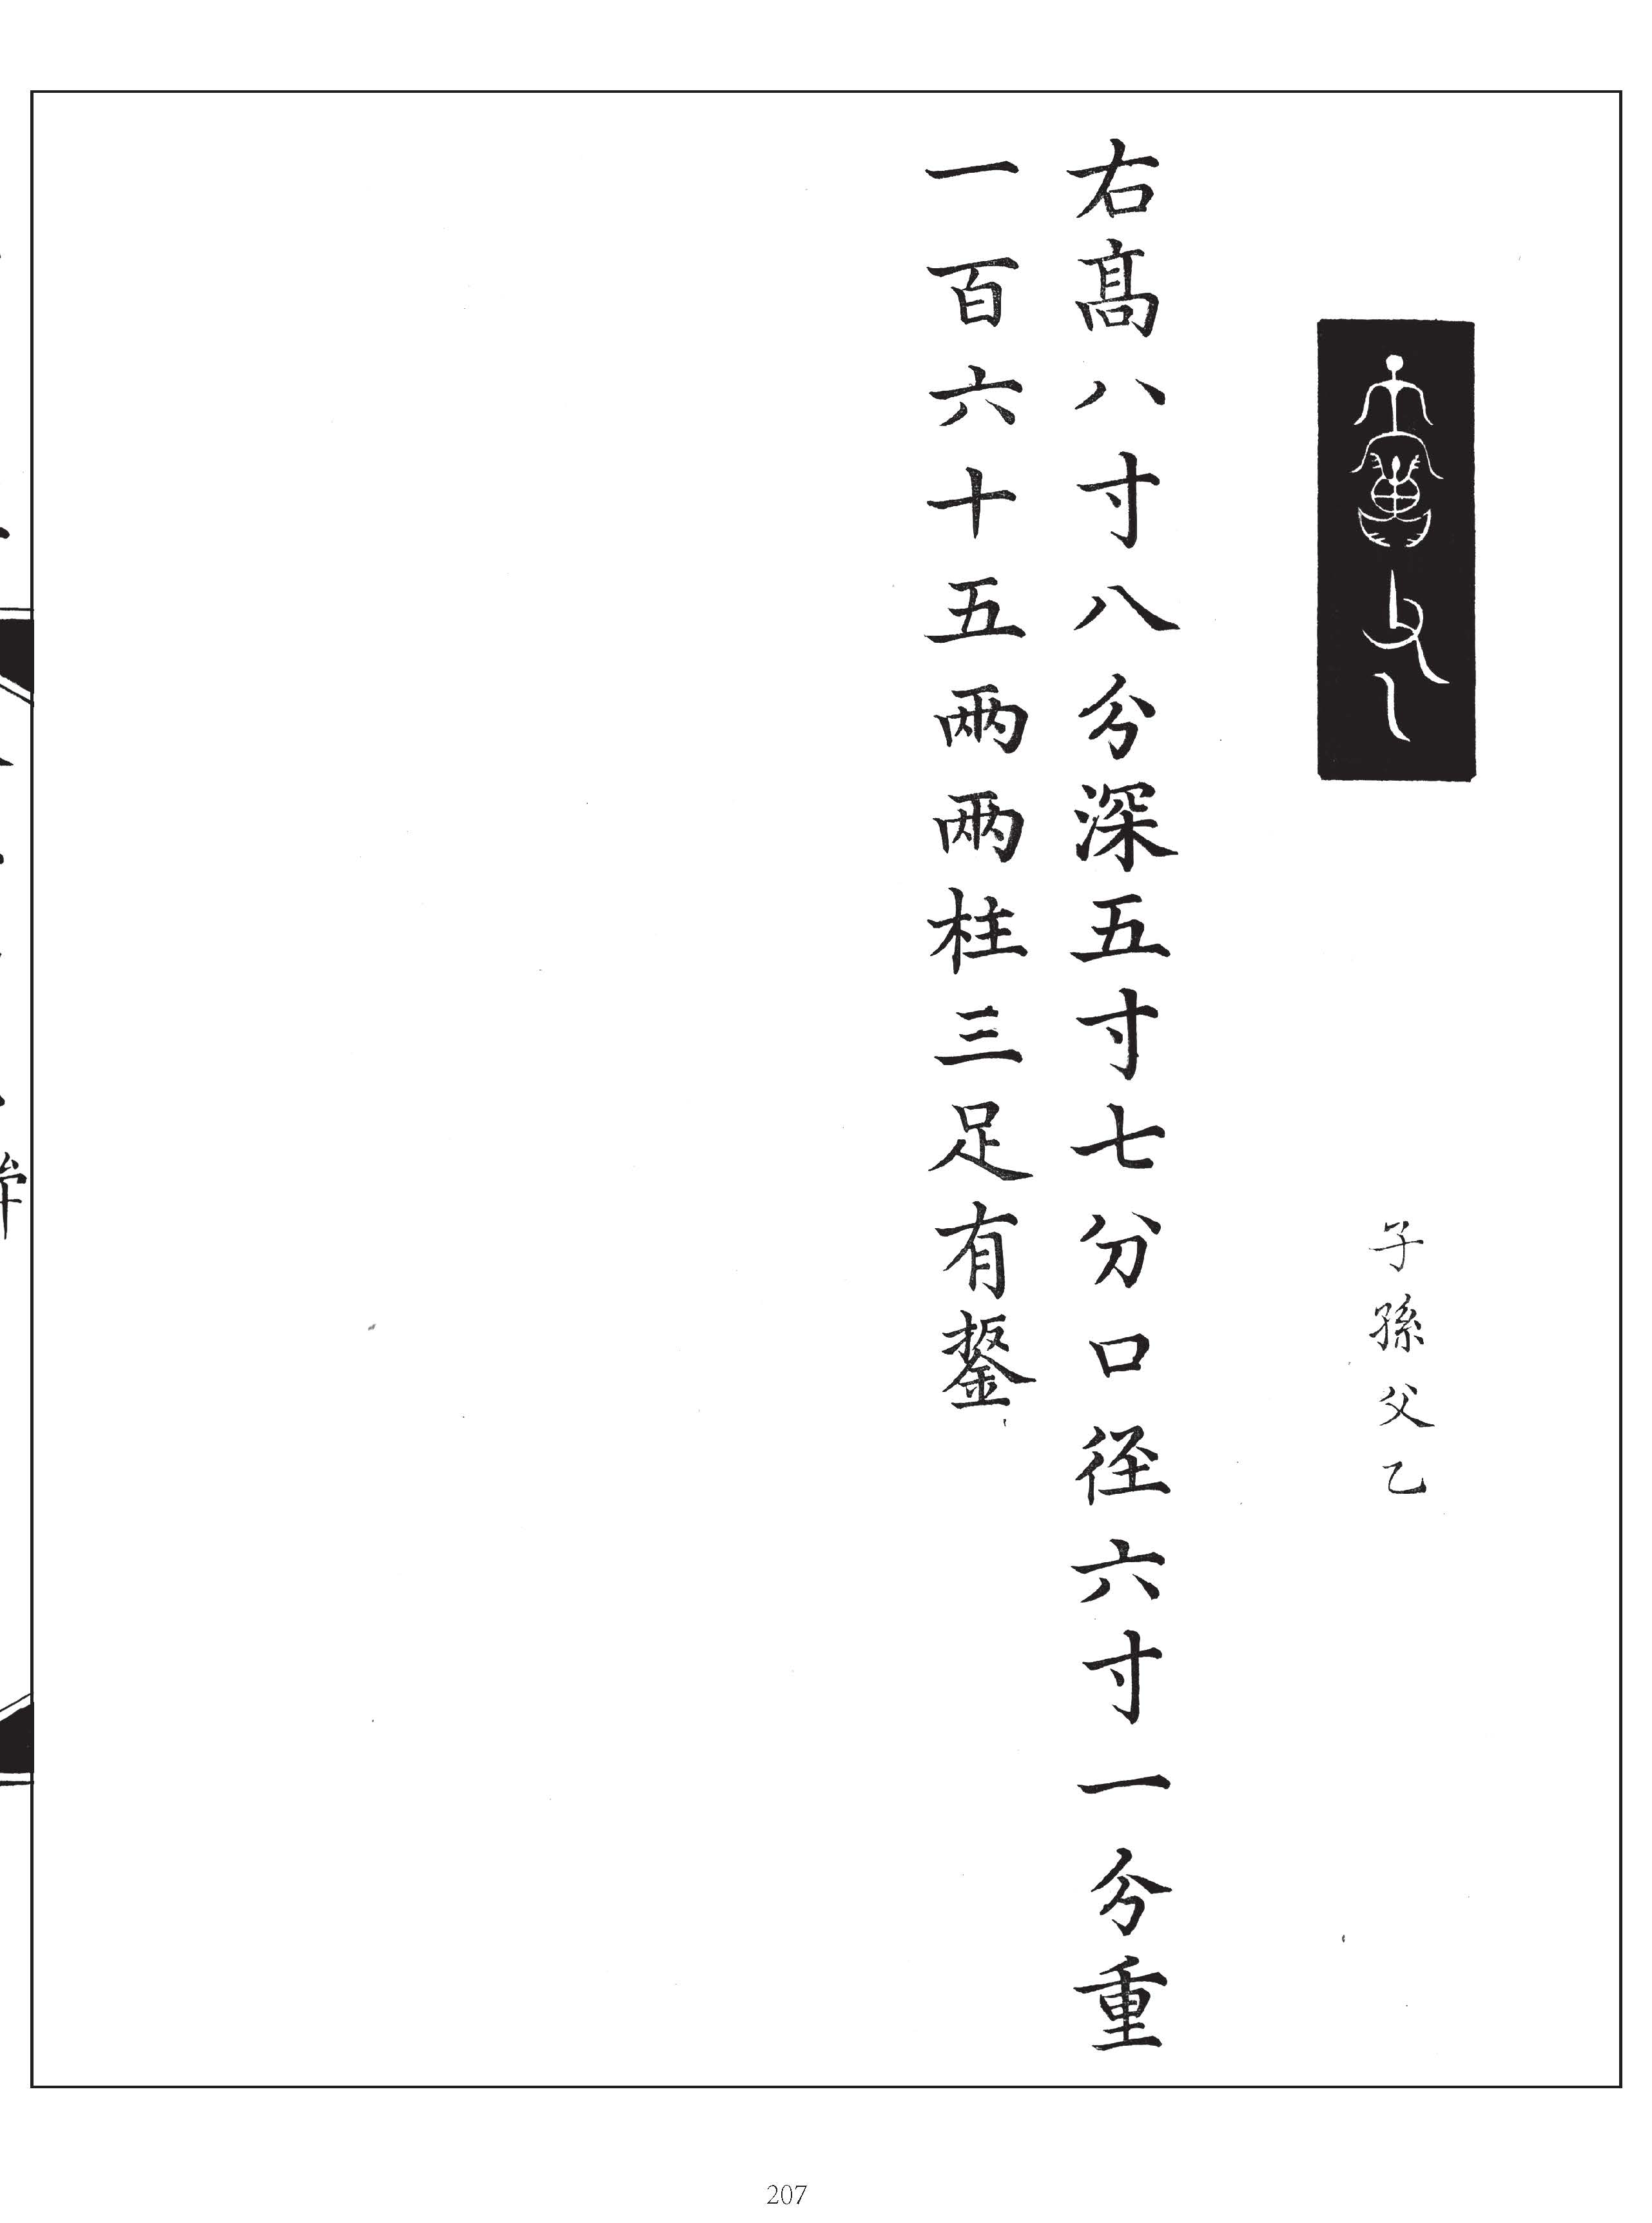 子孫父乙
右高八寸八分深五寸七分口徑六寸一分重
一百六十五兩兩柱三足有鋬
207